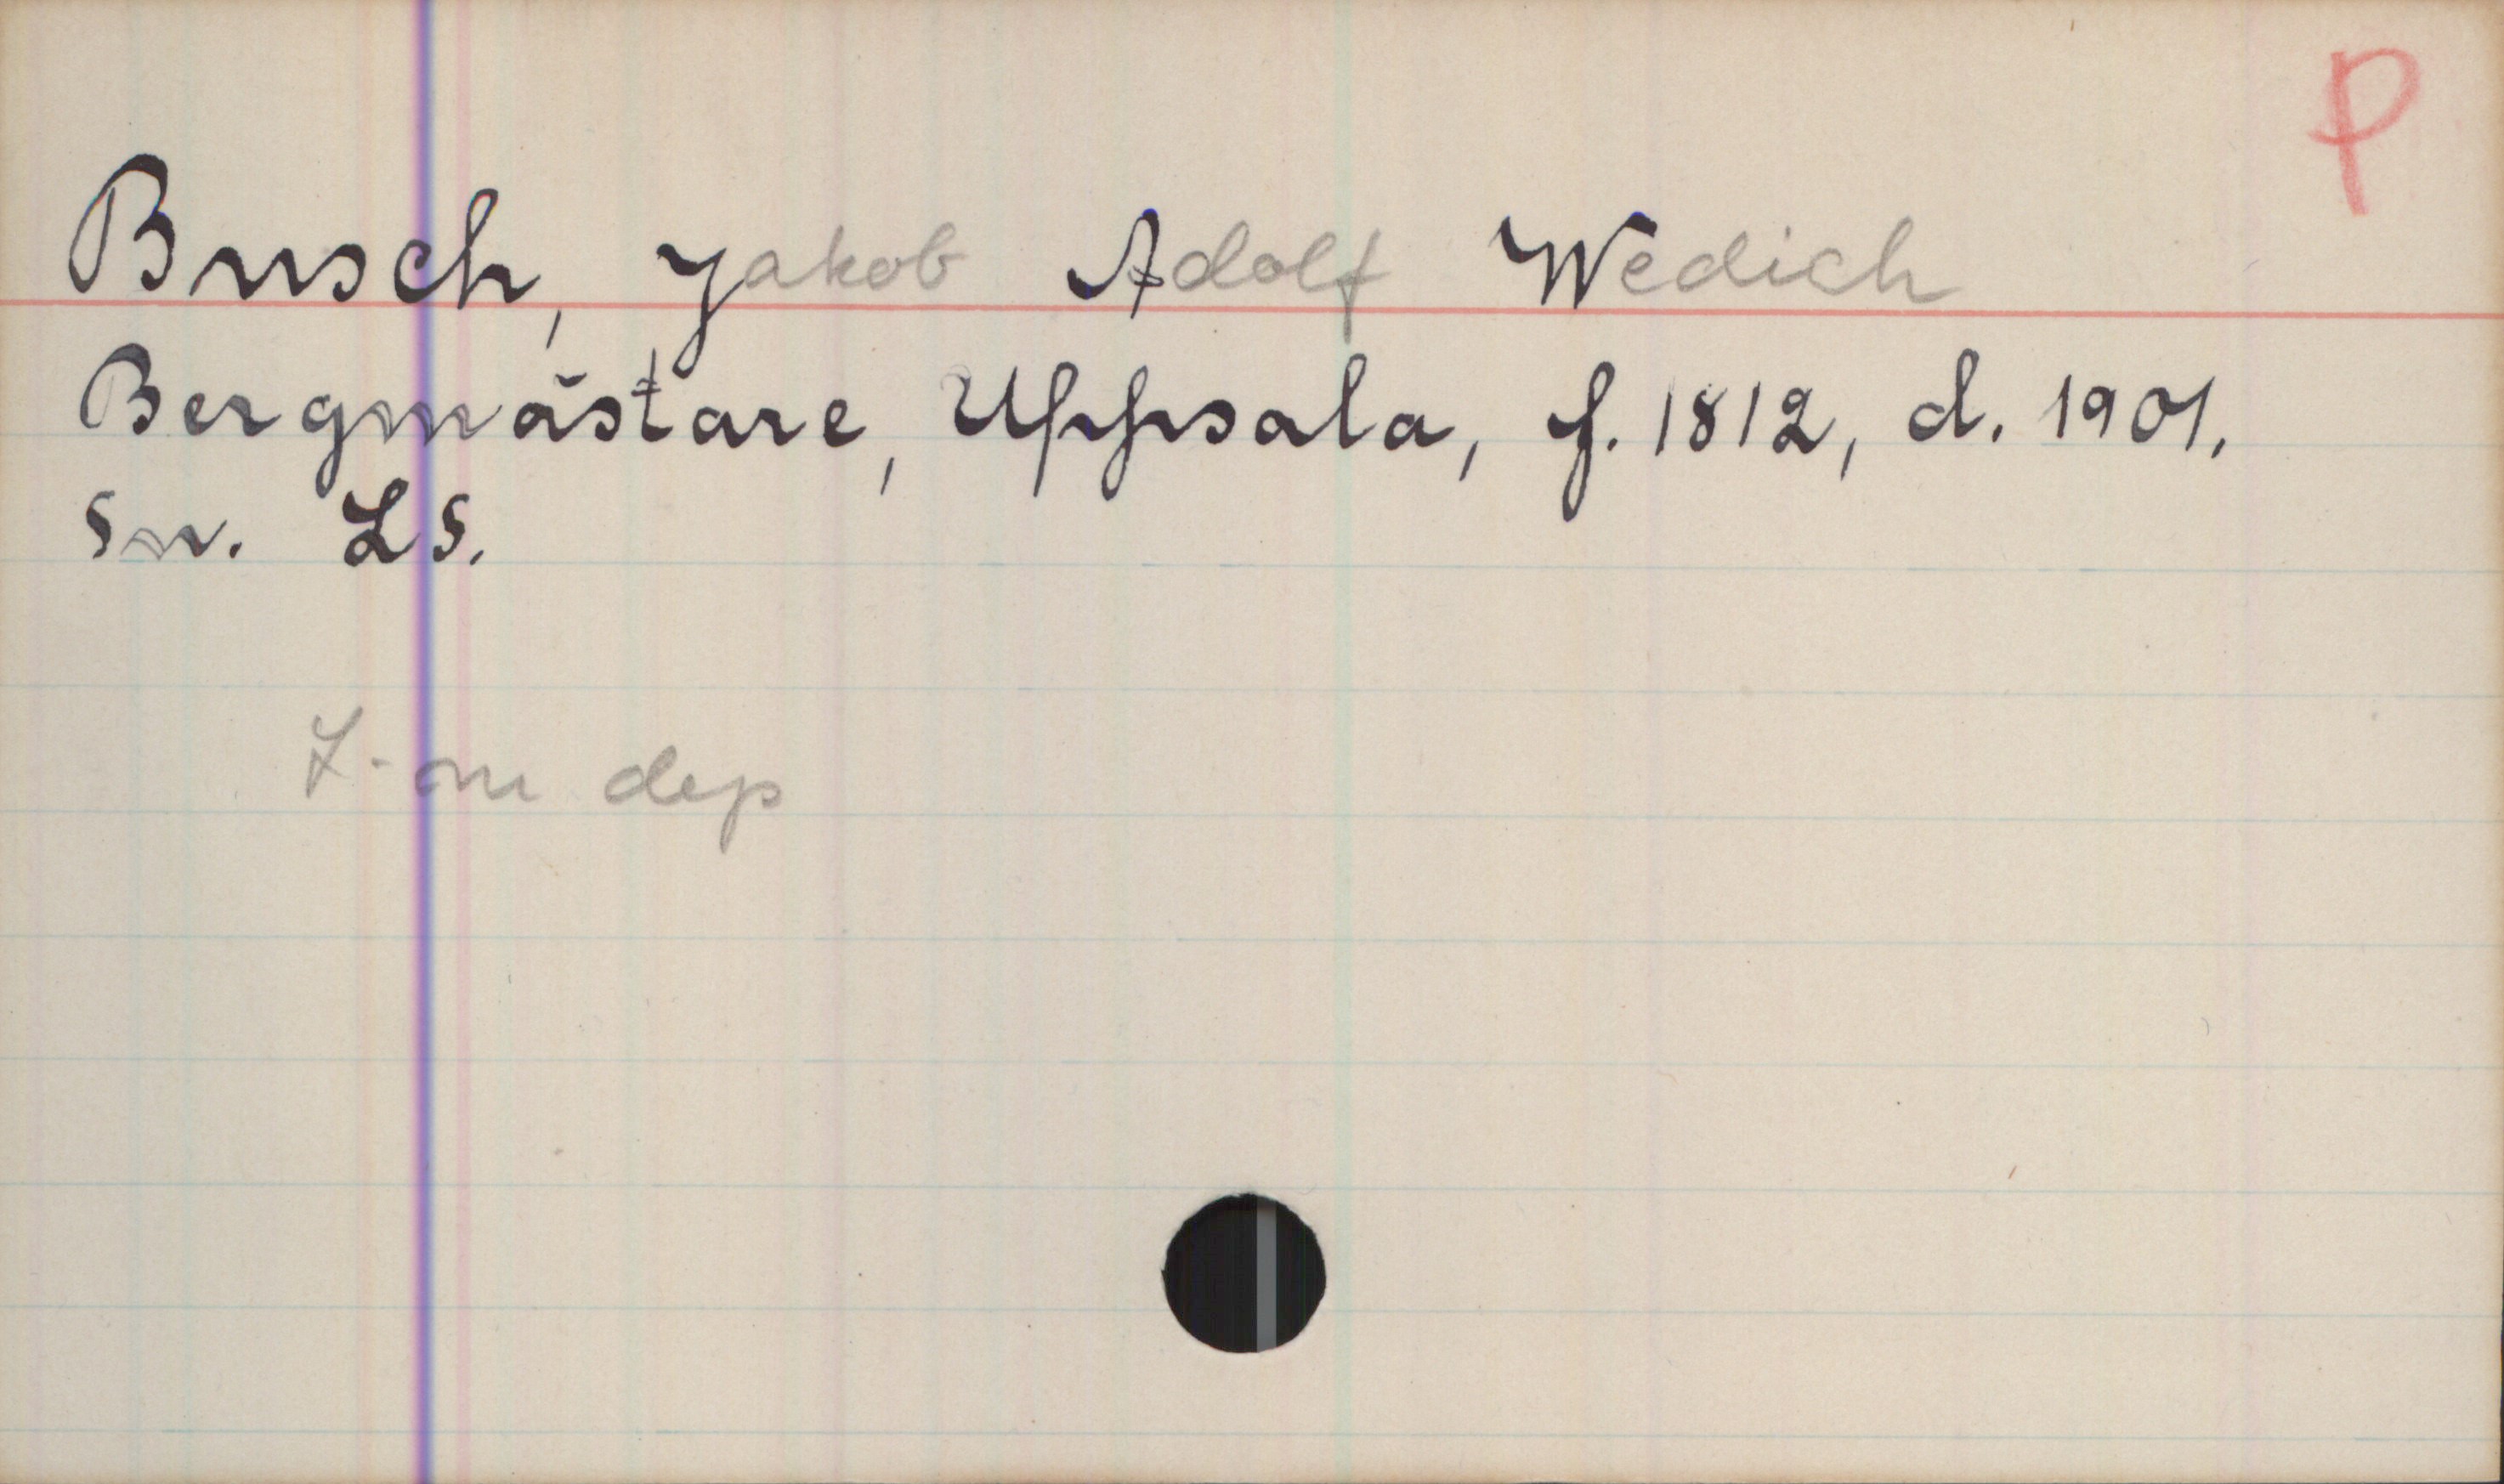 P
Busch, Jakob Adolf Wedich
Bergmästare, Uppsala, f. 1812, d. 1901.
Sn. LS.
L-ni dep